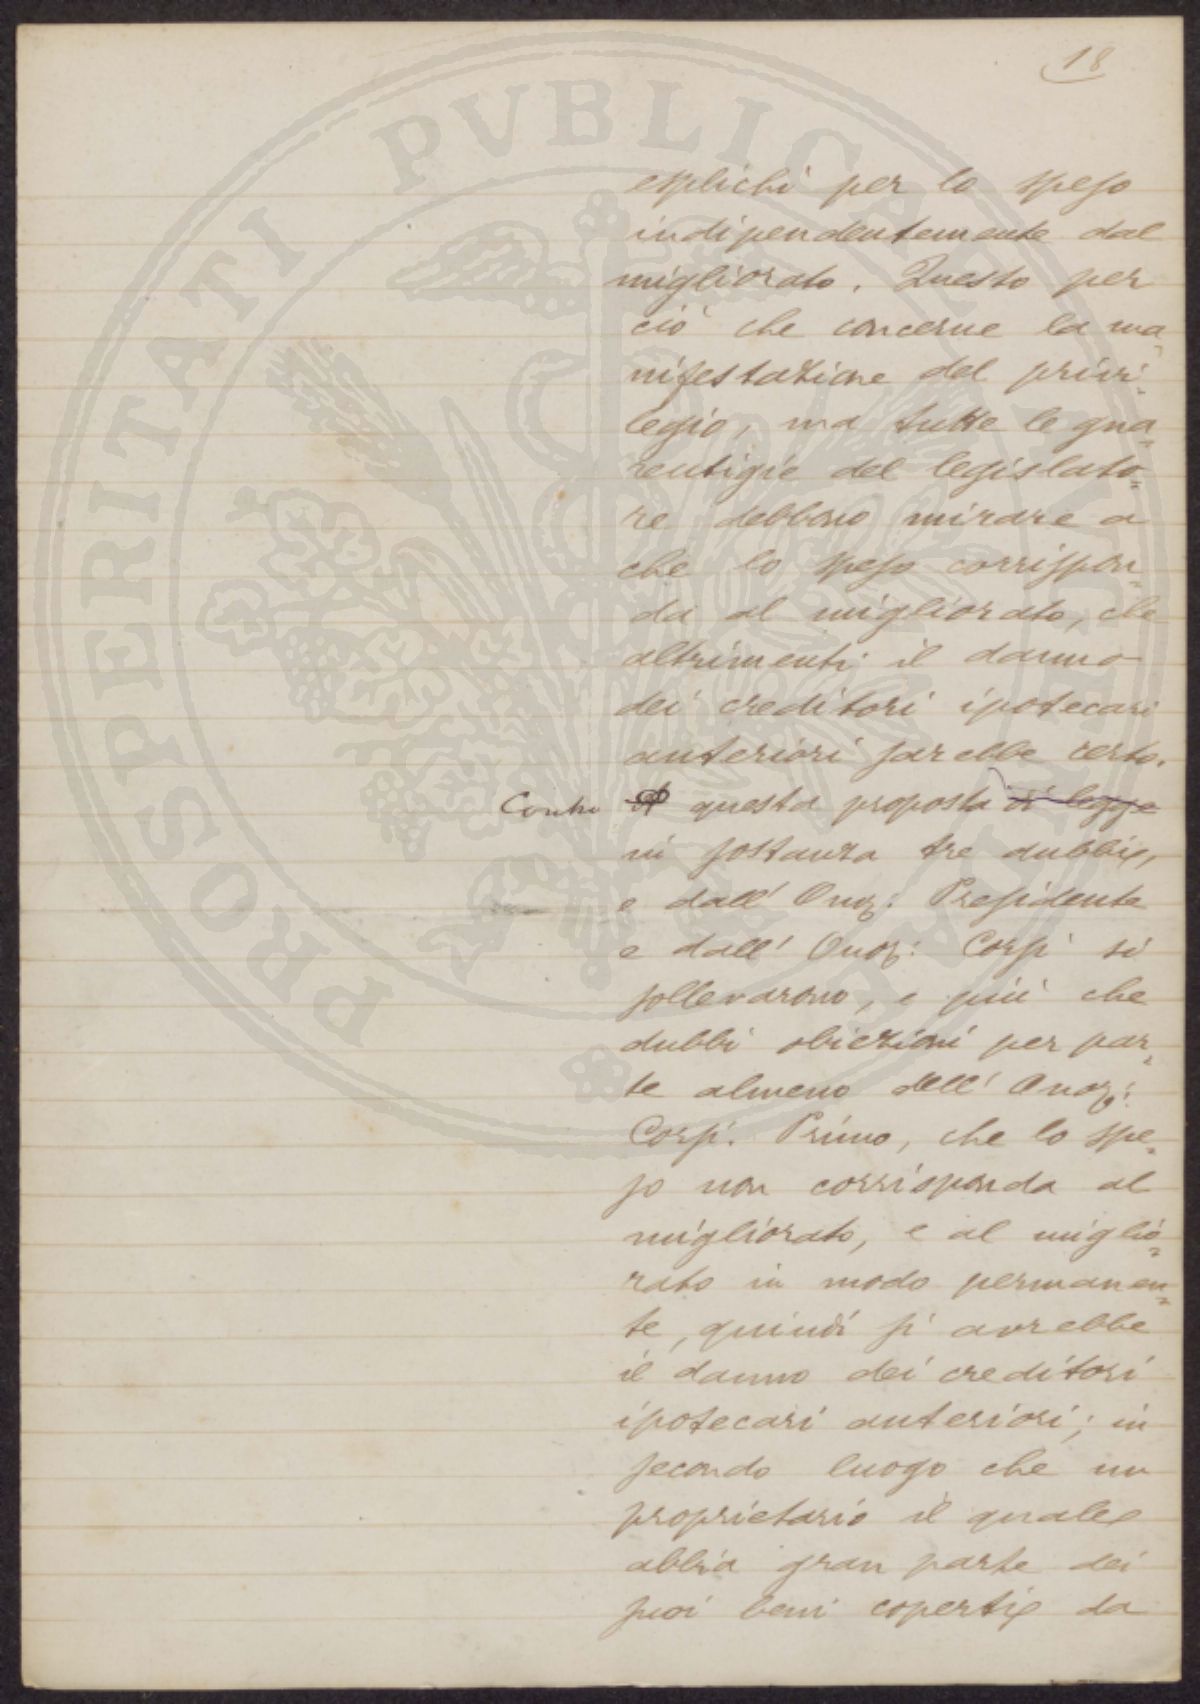 18
esplichi per lo speso
indipendentemente dal
migliorato. Questo per
ciò che concerne la ma-
nifestazione del privi-
legio, ma tutte le gua=
rentigie del legislato=
re debbono mirare a
che lo speso corrispon=
da al migliorato, che
altrimenti il danno
dei creditori ipotecari
anteriori sarebbe certo.
Contro questa proposta di legge
in sostanza tre dubbi,
e dall' Onor: Presidente
e dall' Onor: Corsi si
sollevarono, e più che
dubbi obiezioni per par=
te almeno dell' Onor:
Corsi. Primo, che lo spe=
so non corrisponda al
migliorato, e al miglio=
rato in modo permanen=
te, quindi si avrebbe
il danno dei creditori
ipotecari anteriori; in
secondo luogo che un
proprietario il quale
abbia gran parte dei
suoi beni coperti da
PROSPERITATI PVBLICAE AVGENDAE